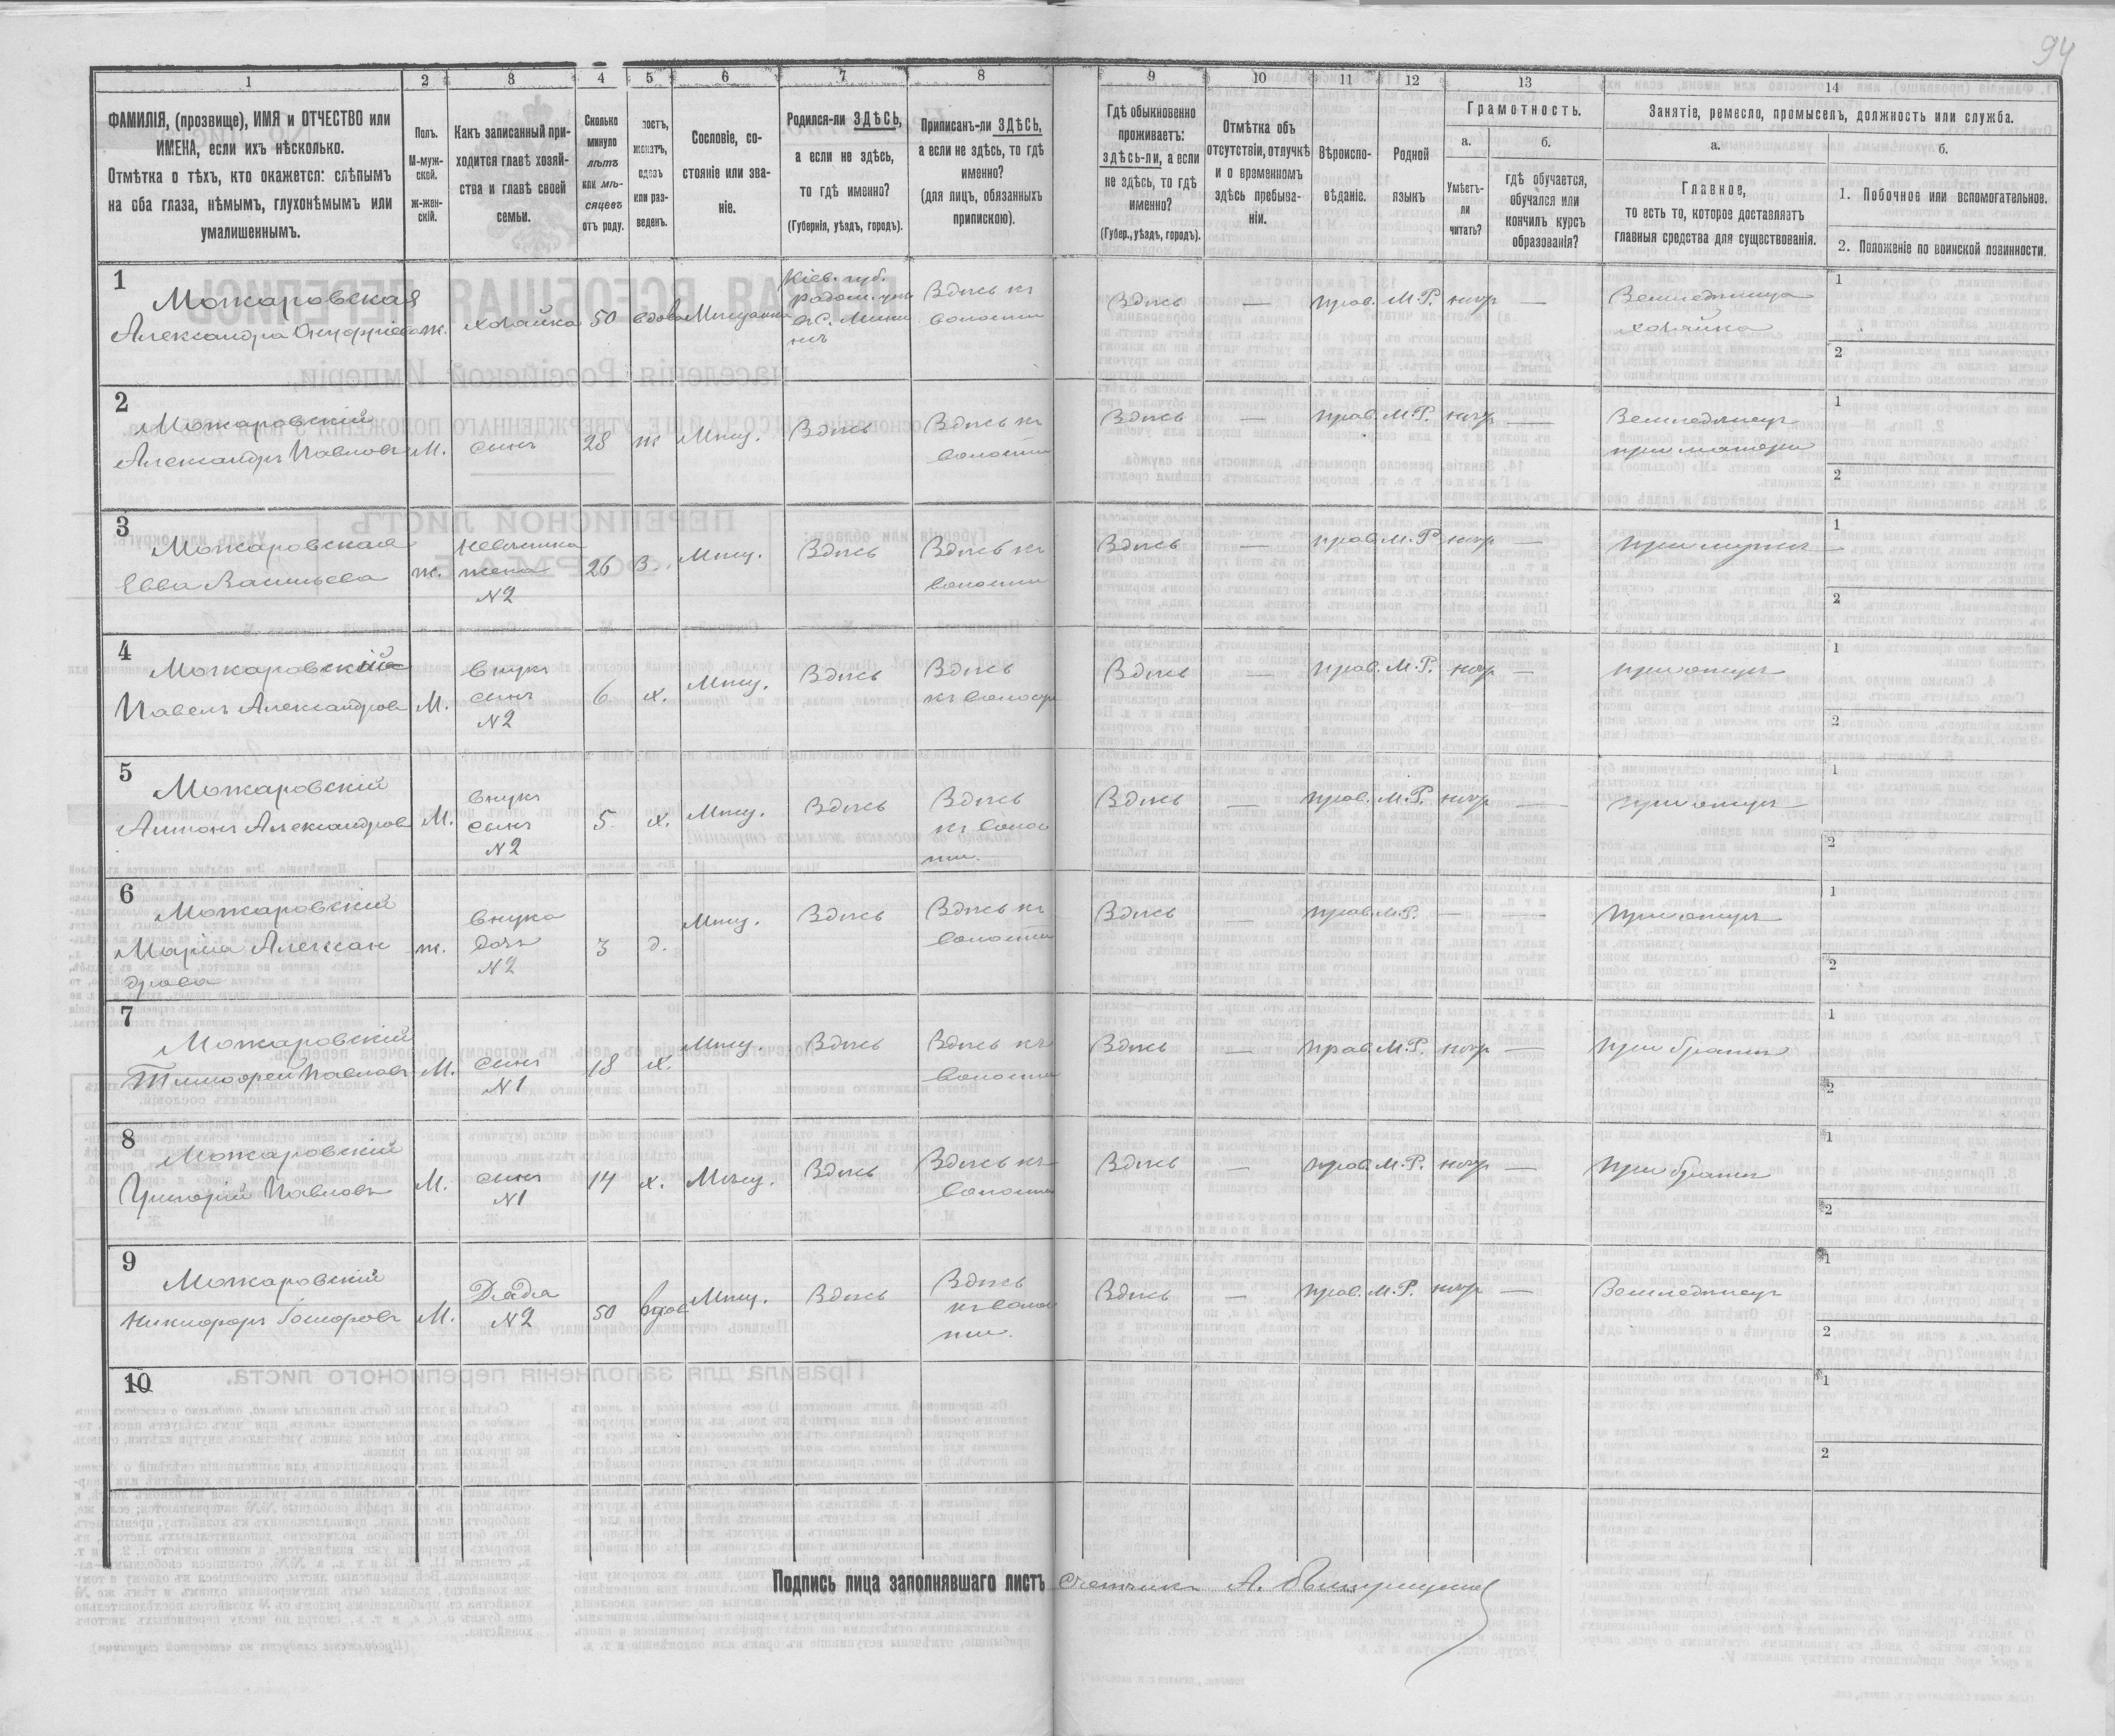 94
1 2 3 4 5 6 7 8 9 10 11 12 13 14
ФАМИЛІЯ, (прозвище), ИМЯ и ОТЧЕСТВО или
ИМЕНА, если ихъ нѣсколько.
Отмѣтка о тѣхъ, кто окажется: слѣпымъ
на оба глаза, нѣмымъ, глухонѣмымъ или
умалишеннымъ.
Полъ.
М-муж-
ской.
ж-жен-
скій.
Какъ записанный при-
ходится главѣ хозяй-
ства и главѣ своей
семьи.
Сколько
минуло
лѣтъ
или мѣ-
сяцевъ
отъ роду.
лостъ,
женатъ,
вдовъ
или раз-
веденъ.
Сословіе, со-
стояніе или зва-
ніе.
Родился-ли ЗДѢСЬ,
а если не здѣсь,
то гдѣ именно?
(Губернія, уѣздъ, городъ).
Приписанъ-ли ЗДѢСЬ,
а если не здѣсь, то гдѣ
именно?
(для лицъ, обязанныхъ
припискою).
Гдѣ обыкновенно
проживаетъ:
здѣсь-ли, а если
не здѣсь, то гдѣ
именно?
(Губер., уѣздъ, городъ).
Отмѣтка объ
отсутствіи, отлучкѣ
и о временномъ
здѣсь пребыва-
ніи.
Вѣроиспо-
вѣданіе.
Родной
языкъ
Грамотность.
а.
Умѣетъ-
ли
читать?
б.
гдѣ обучается,
обучался или
кончилъ курсъ
образованія?
Занятіе, ремесло, промыселъ, должность или служба.
а.
Главное,
то есть то, которое доставляетъ
главныя средства для существованія.
б.
1. Побочное или вспомогательное.
2. Положеніе по воинской повинности.
1
Можаровская
Александра Онуфріева ж. хозяйка 50 вдова Мѣщанка
Кіев. губ.
Радом. уѣз.
Здѣсь къ
волости
Здѣсь — прав. М.Р. негр —
Земледѣлица
хозяйка
1
2
2
Можаровскій
Александръ Павловъ М. сынъ 28 ж Мѣщ. Здѣсь
Здѣсь къ
волости
Здѣсь — прав. М.Р. негр —
Земледѣлецъ
при матери
1
2
3
Можаровская
Евва Васильева ж.
невѣстка
жена
N2
26 З. Мѣщ. Здѣсь
Здѣсь къ
волости
Здѣсь — прав. М.Р. негр — при мужѣ
1
2
4
Можаровскій
Павелъ Александров М.
внукъ
сынъ
N2
6 х. Мѣщ. Здѣсь
Здѣсь
къ волост
Здѣсь — прав. М.Р. негр — при отцѣ
1
2
5
Можаровскій
Антонъ Александров М.
внукъ
сынъ
N2
5. х. Мѣщ. Здѣсь
Здѣсь
къ волос
ти.
Здѣсь — прав. М.Р. негр — при отцѣ
1
2
6
Можаровскій
Марія Алексан
дрова
ж.
внука
дочь
N2
3 д. Мѣщ. Здѣсь
Здѣсь къ
волости
Здѣсь — прав. М.Р. — — при отцѣ
1
2
7
Можаровскій
Тимофей Павловъ М.
сынъ
N1
18 х. Мѣщ. Здѣсь
Здѣсь къ
волости
Здѣсь — прав. М.Р. негр — при братѣ
1
2
8
Можаровскій
Григорій Павловъ М.
сынъ
N1
14 х. Мѣщ. Здѣсь
Здѣсь къ
волости
Здѣсь — прав. М.Р. негр — при братѣ
1
2
9
Можаровскій
Никифоръ М.
Дядя
N2
50 вдов Мѣщ. Здѣсь
Здѣсь
къ волос
ти.
Здѣсь — прав. М.Р. негр — Земледѣлецъ
1
2
10
1
2
Подпись лица заполнявшаго листъ Счетчикъ А.